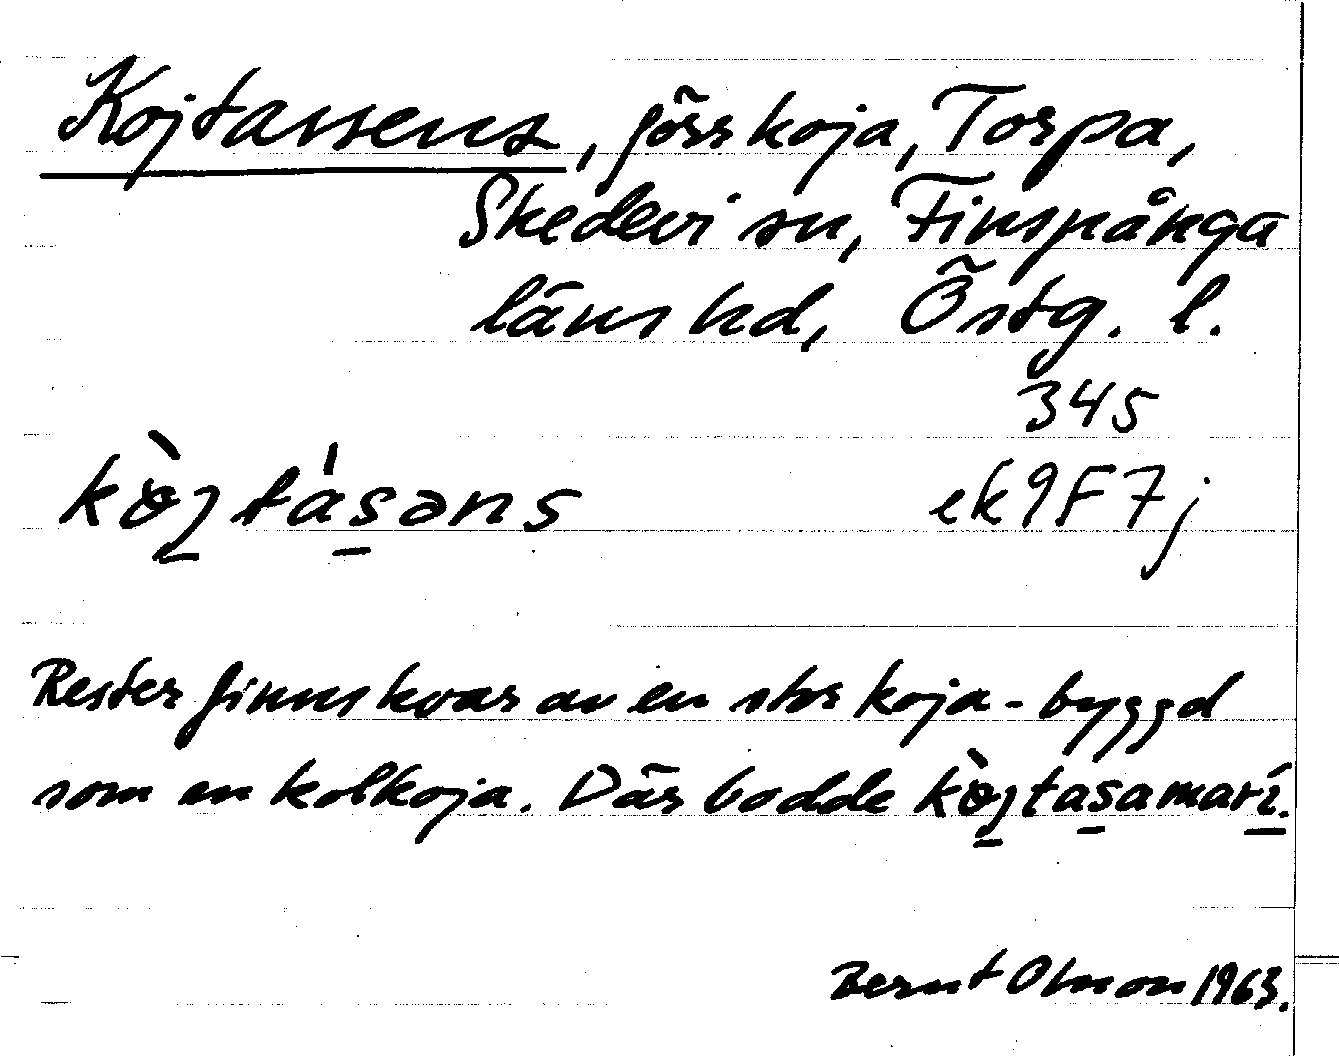 Kojtassens, förr koja, Torpa,
Skedevi sn, Finspånga
läns hd, Östg. l.
345
kòjtásəns ek9F7j
Rester finns kvar av en stor koja - byggd
som en kolkoja. Där bodde kòjtasamari.
Bernt Olsson 1963.